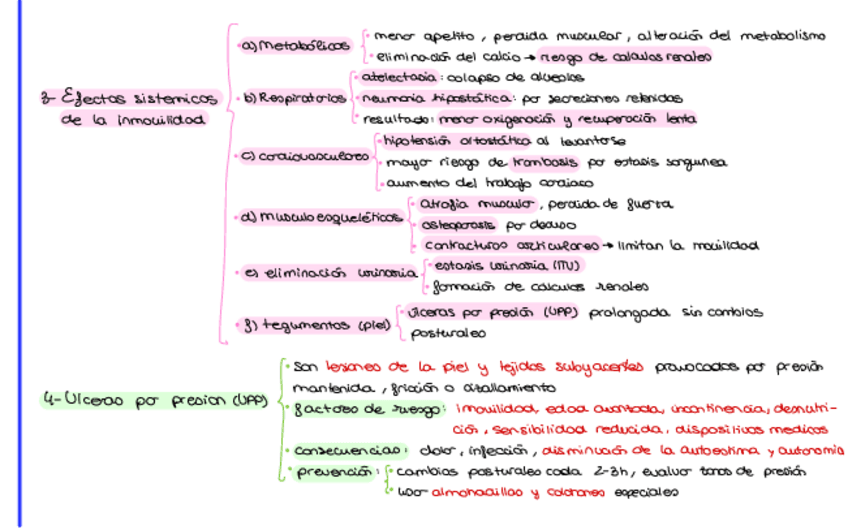 3- Efectos sistemicos
de la inmovilidad
a) Metabólicos
• menor apetito, perdida muscular, alteración del metabolismo
• eliminación del calcio → riesgo de calculos renales
• b) Respiratorios
• atelectasia: colapso de alveolos
• neumonia hipostática: por secreciones retenidas
• resultado: menor oxigenación y recuperación lenta
• c) cardiovasculares
• hipotensión ortostática al levantarse
• mayor riesgo de trombosis por estasis sanguinea
• aumento del trabajo cardiaco
• d) musculo esqueléticos
• atrofia muscular, perdida de fuerza
• osteoporosis por desuso
• contracturas articulares → limitan la movilidad
• e) eliminación urinaria
• estasis urinaria (ITU)
• formación de calculos renales
• f) tegumentos (piel)
• úlceras por presión (UPP) prolongada sin cambios
posturales
4- Ulceras por presion (UPP)
• Son lesiones de la piel y tejidos subyacentes provocados por presión
mantenida, fricción o cizallamiento
• factores de riesgo: inmovilidad, edad avanzada, incontinencia, desnutri-
ción, sensibilidad reducida, dispositivos medicos
• consecuencias: dolor, infección, disminución de la autoestima y autonomia
• prevención:
• cambios posturales cada 2-3h, evaluar zonas de presión
• uso almohadillas y colchones especiales